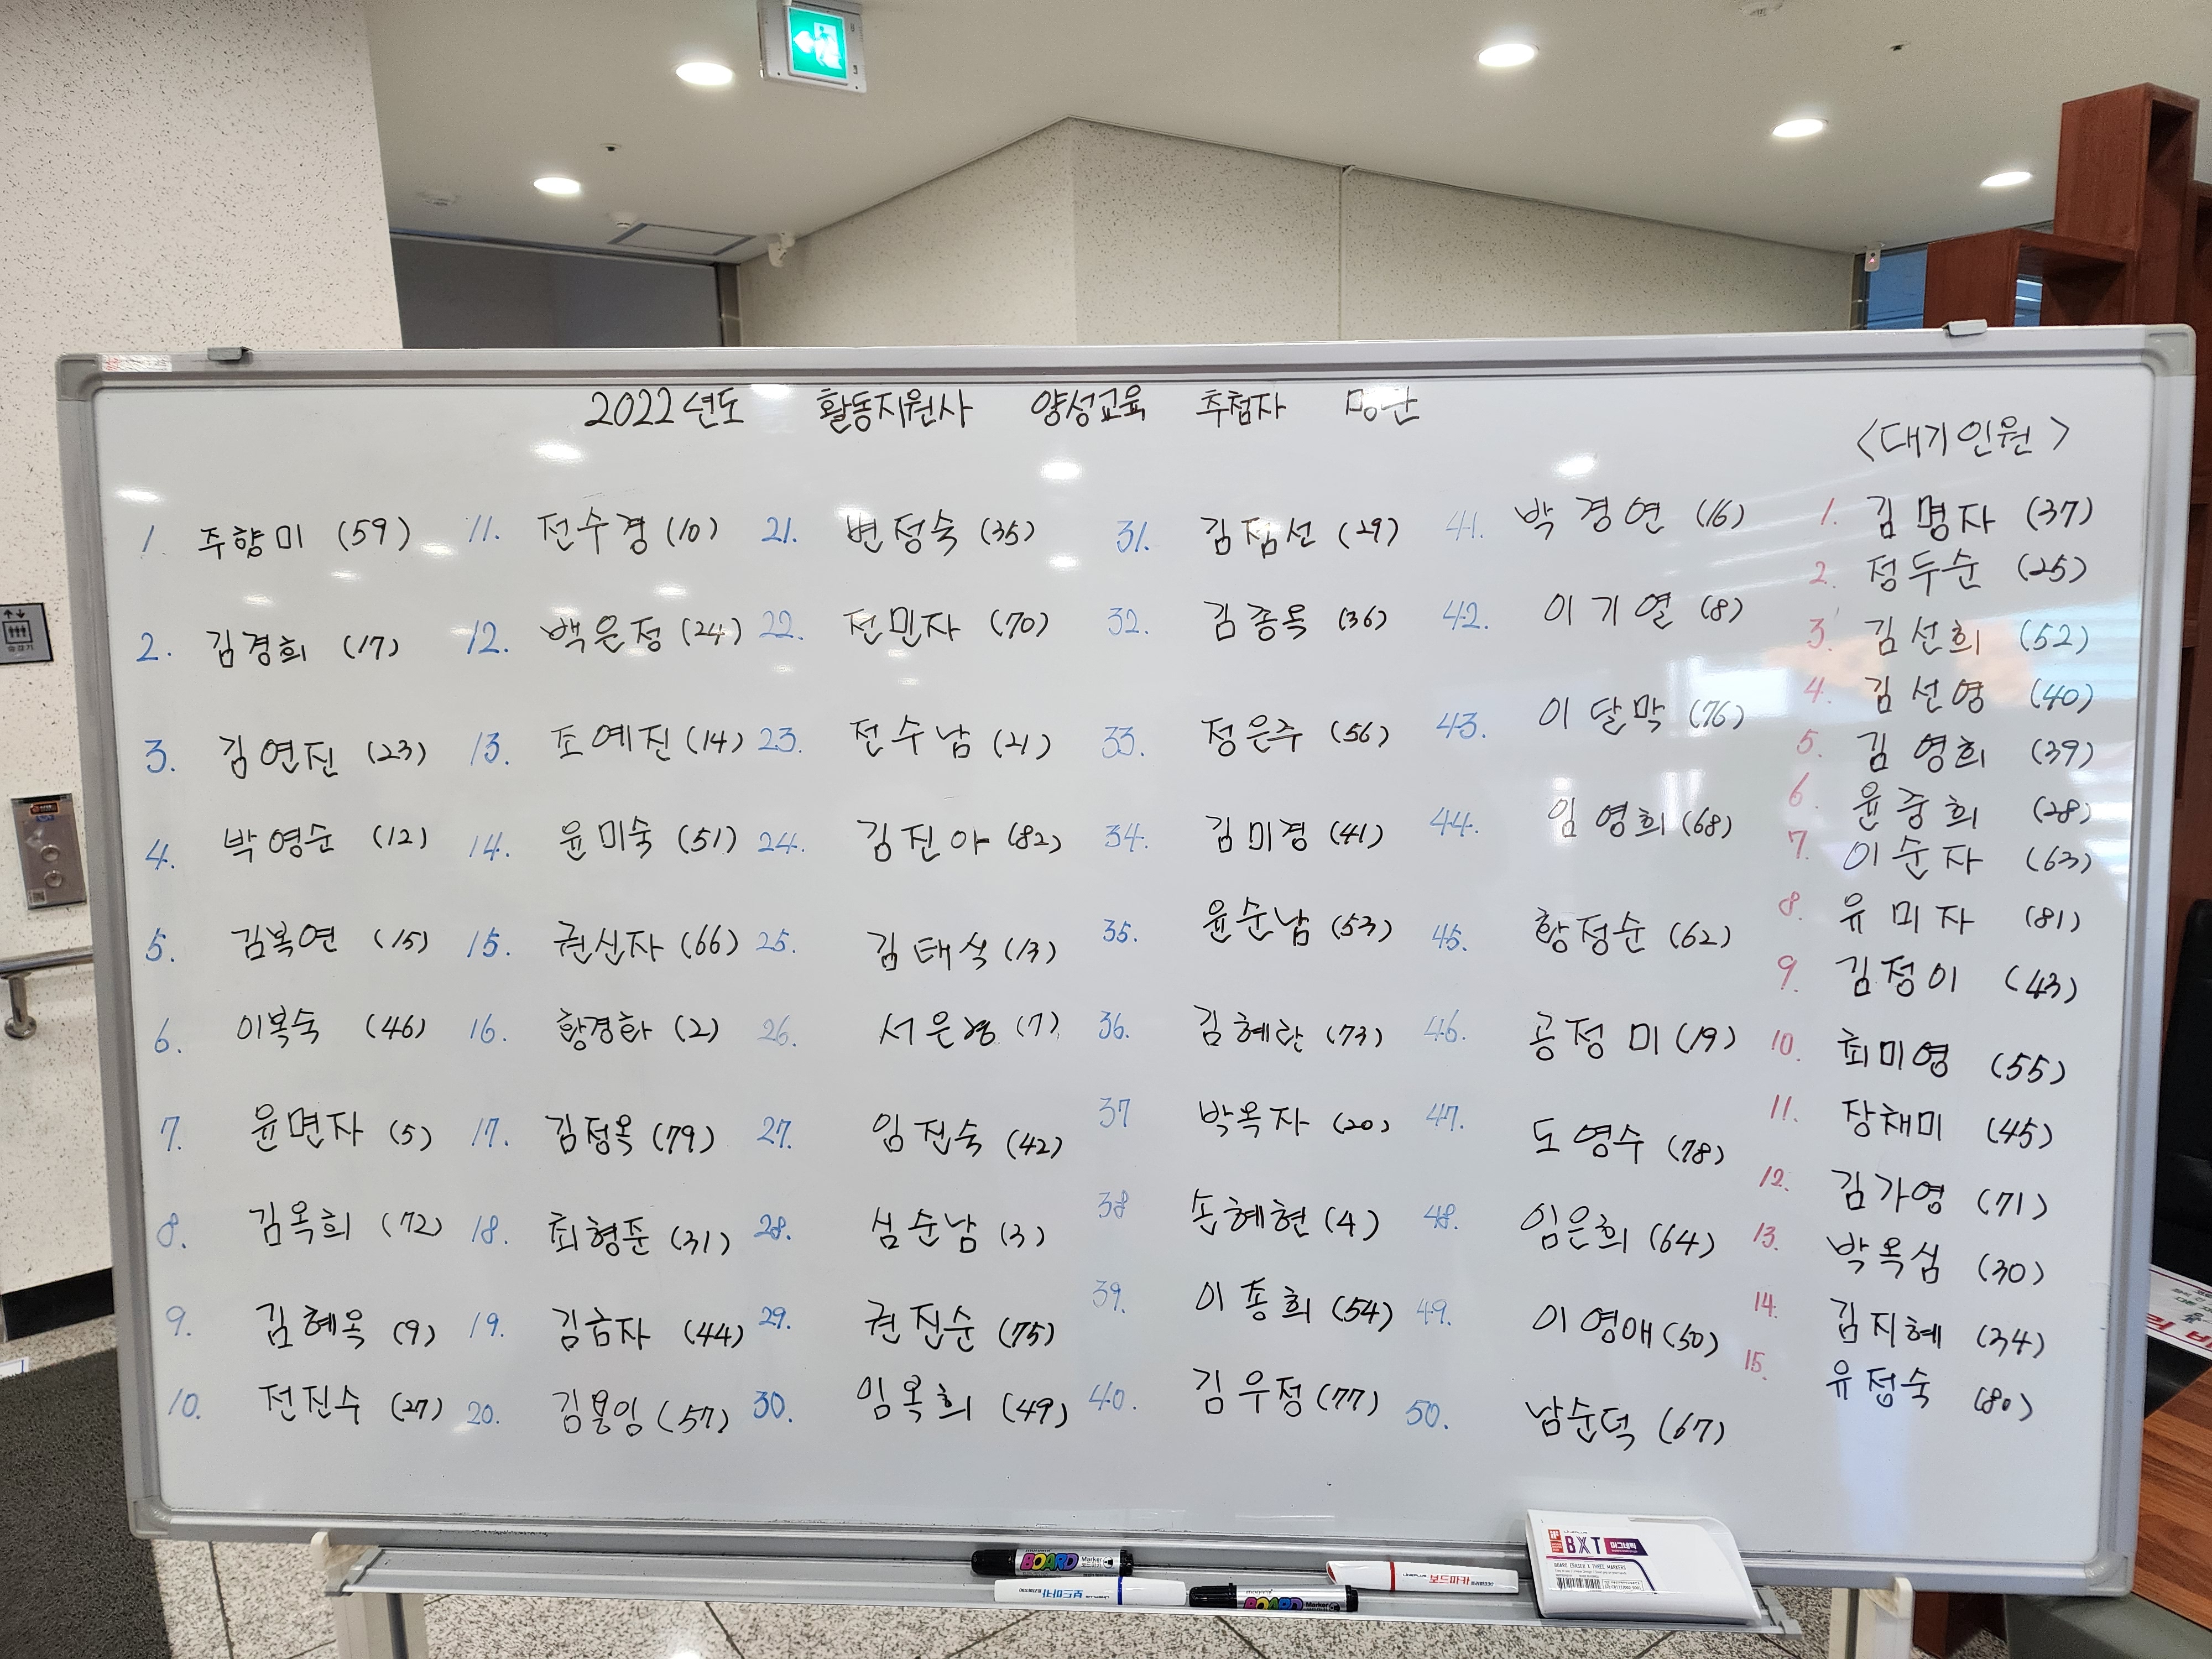 2022년도 활동지원사 양성교육 추첨자 명단
1. 주향미 (59)
2. 김경희 (17)
3. 김연진 (23)
4. 박영순 (12)
5. 김복연 (15)
6. 이복숙 (46)
7. 윤면자 (5)
8. 김옥희 (72)
9. 김혜옥 (9)
10. 전진수 (27)
11. 전수경 (10)
12. 백은정 (24)
13. 조예진 (14)
14. 윤미숙 (51)
15. 권신자 (66)
16. 황경화 (2)
17. 김정옥 (79)
18. 최형준 (31)
19. 김금자 (44)
20. (57)
21. 변정숙 (35)
22. 전민자 (70)
23. 전수남 (21)
24. 김진아 (82)
25. 김태식 (13)
26. (7)
27. 임진숙 (42)
28. 심순남 (3)
29. 권진순 (75)
30. 임옥희 (49)
31. 김점선 (29)
32. 김종옥 (36)
33. 정은주 (56)
34. 김미경 (41)
35. 윤순남 (53)
36. 김혜란 (73)
37 박옥자 (20)
38 손혜현 (4)
39. 이종희 (54)
40. 김우정 (77)
41. 박경연 (16)
42. 이기열 (8)
43. 이달막 (76)
44. 임영희 (68)
45. 황정순 (62)
46. 공정미 (19)
47. 도영수 (78)
48. 임은희 (64)
49. 이영애 (50)
50. 남순덕 (67)
<대기인원>
1. 김명자 (37)
2. 정두순 (25)
3. 김선희 (52)
4. 김선영 (40)
5. 김영희 (39)
6. 윤중희 (28)
7. 이순자 (63)
8. 유미자 (81)
9. 김정이 (43)
10. 최미영 (55)
11. 장채미 (45)
12. 김가영 (71)
13. 박옥심 (30)
14. 김지혜 (34)
15. 유정숙 (80)
BOARD Marker
보드마카
보드마카
BOARD Marker
BXT 마그네틱
BOARD ERASER & THREE MARKERS